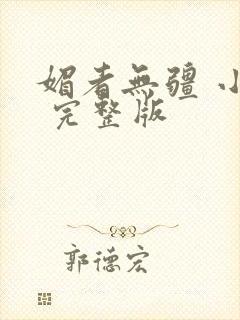 媚者無疆 小
完整版
郭德宏